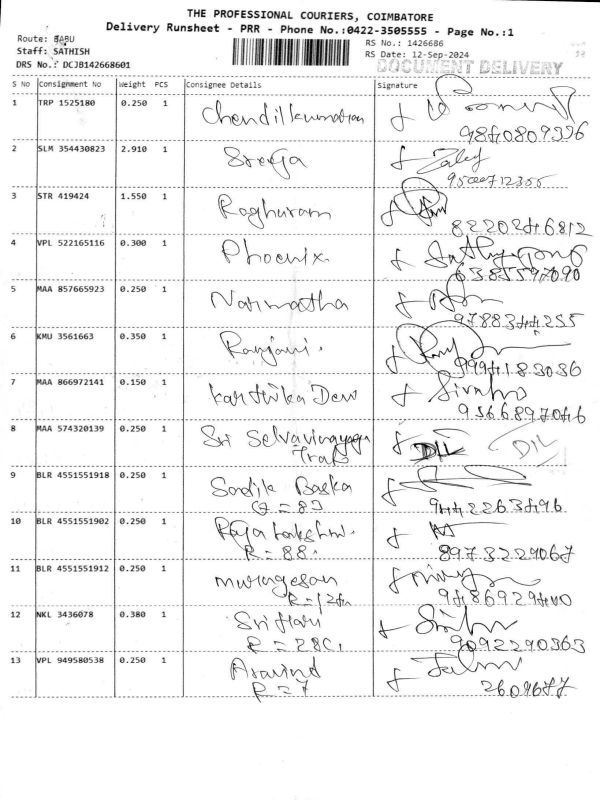 THE PROFESSIONAL COURIERS, COIMBATORE
Delivery Runsheet - PRR - Phone No.:0422-3505555 - Page No.:1
Route: BABU
RS No.: 1426686
Staff: SATHISH
RS Date: 12-Sep-2024
DRS No.: DCJB142668601
DOCUMENT DELIVERY
S No Consignment No Weight PCS Consignee Details Signature
1 TRP 1525180 0.250 1 Chendilkumaran
9840809396
2 SLM 354430823 2.910 1 Sreeja
9500712355
3 STR 419424 1.550 1 Raghuram
8220246812
4 VPL 522165116 0.300 1 Phoenix
6385597090
5 MAA 857665923 0.250 1 Narmatha
9788344255
6 KMU 3561663 0.350 1 Ranjani.
9994183036
7 MAA 866972141 0.150 1 Karthika Devi
9566897046
8 MAA 574320139 0.250 1 Sri Selvavinayaga D/L D/L
9 BLR 4551551918 0.250 1 Sadik Basha
9442263496
10 BLR 4551551902 0.250 1 Raja lakshmi.
R = 88. 8973229067
11 BLR 4551551912 0.250 1 murugesan
9486929400
12 NKL 3436078 0.380 1 Sri Hari
9092290363
13 VPL 949580538 0.250 1 Aravind
R = 7 2609677